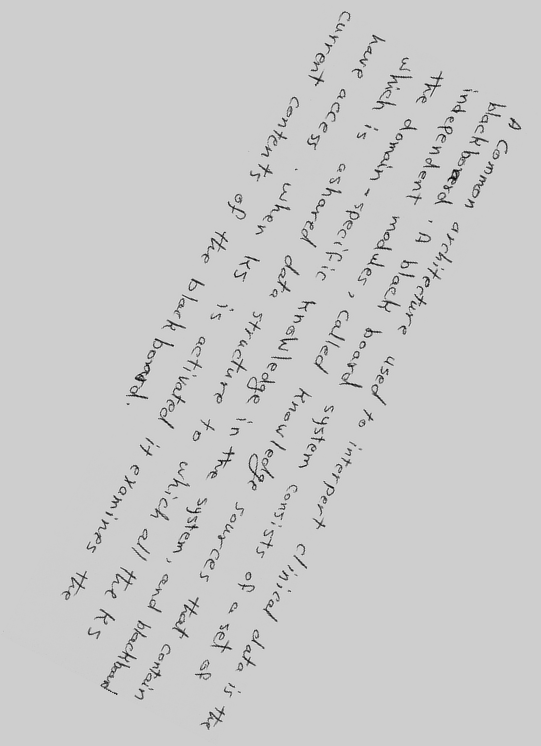 A common architecture used to interpert clinical data is the
blackboard. A black board system consists of a set of
independent modules, called knowledge sources that contain
the domain-specific knowledge in the system, and blackboard
which is ashared data structure to which all the KS
have access. when KS is activated it examines the
current contents of the blackboard.